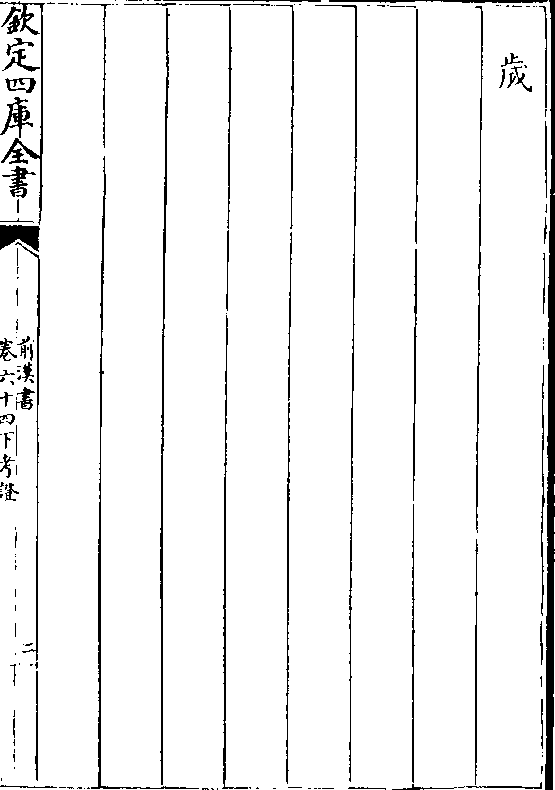 歲
欽定四庫全書
前漢書
卷六十四下考證
二